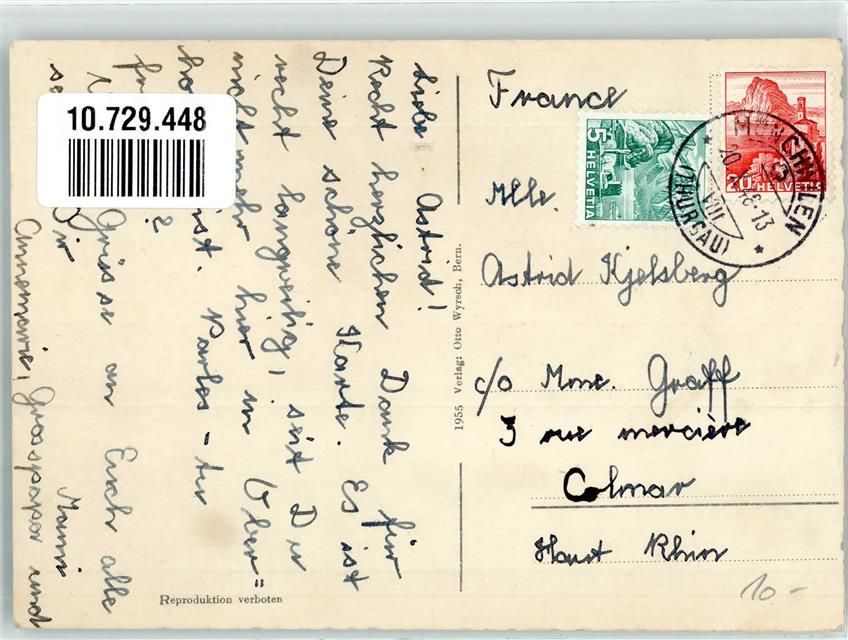 Liebe Astrid!
Recht herzlichen Dank für
Deine schöne Karte. Es ist
recht langweilig, seit Du
nicht mehr hier in Ober=
ho ist. Parles-tu
fr ?
Grüsse an Euch alle
se Dir Mami
Annemarie, Grosspapa und
10.729.448
1955 Verlag: Otto Wyrsch, Bern.
Reproduktion verboten
France
5
HELVETIA
20
HELVETIA
MÜNCHWILEN
20. VIII 48-13
(THURGAU)
Mlle.
Astrid Kjelsberg
c/o Mme. Graff
3 rue mercière
Colmar
Haut Rhin
10.-